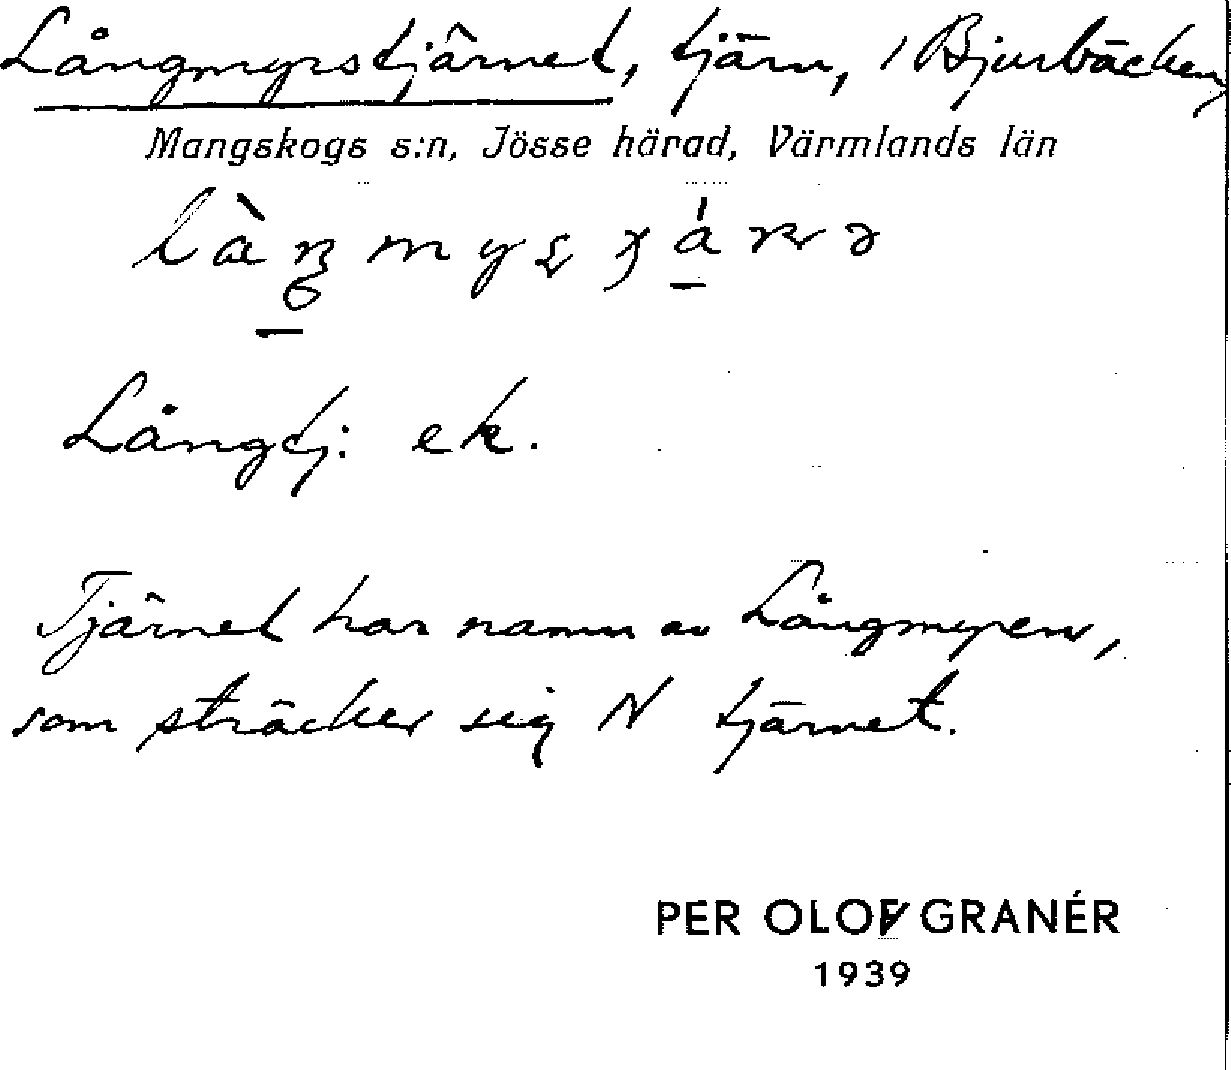 Långmyrstjärnet, tjärn, i Bjurbäcken,
Mangskogs s:n, Jösse härad, Värmlands län
Långtj: ek.
Tjärnet har namn av Långmyren,
som sträcker sig N tjärnet.
PER OLOF GRANÉR
1939